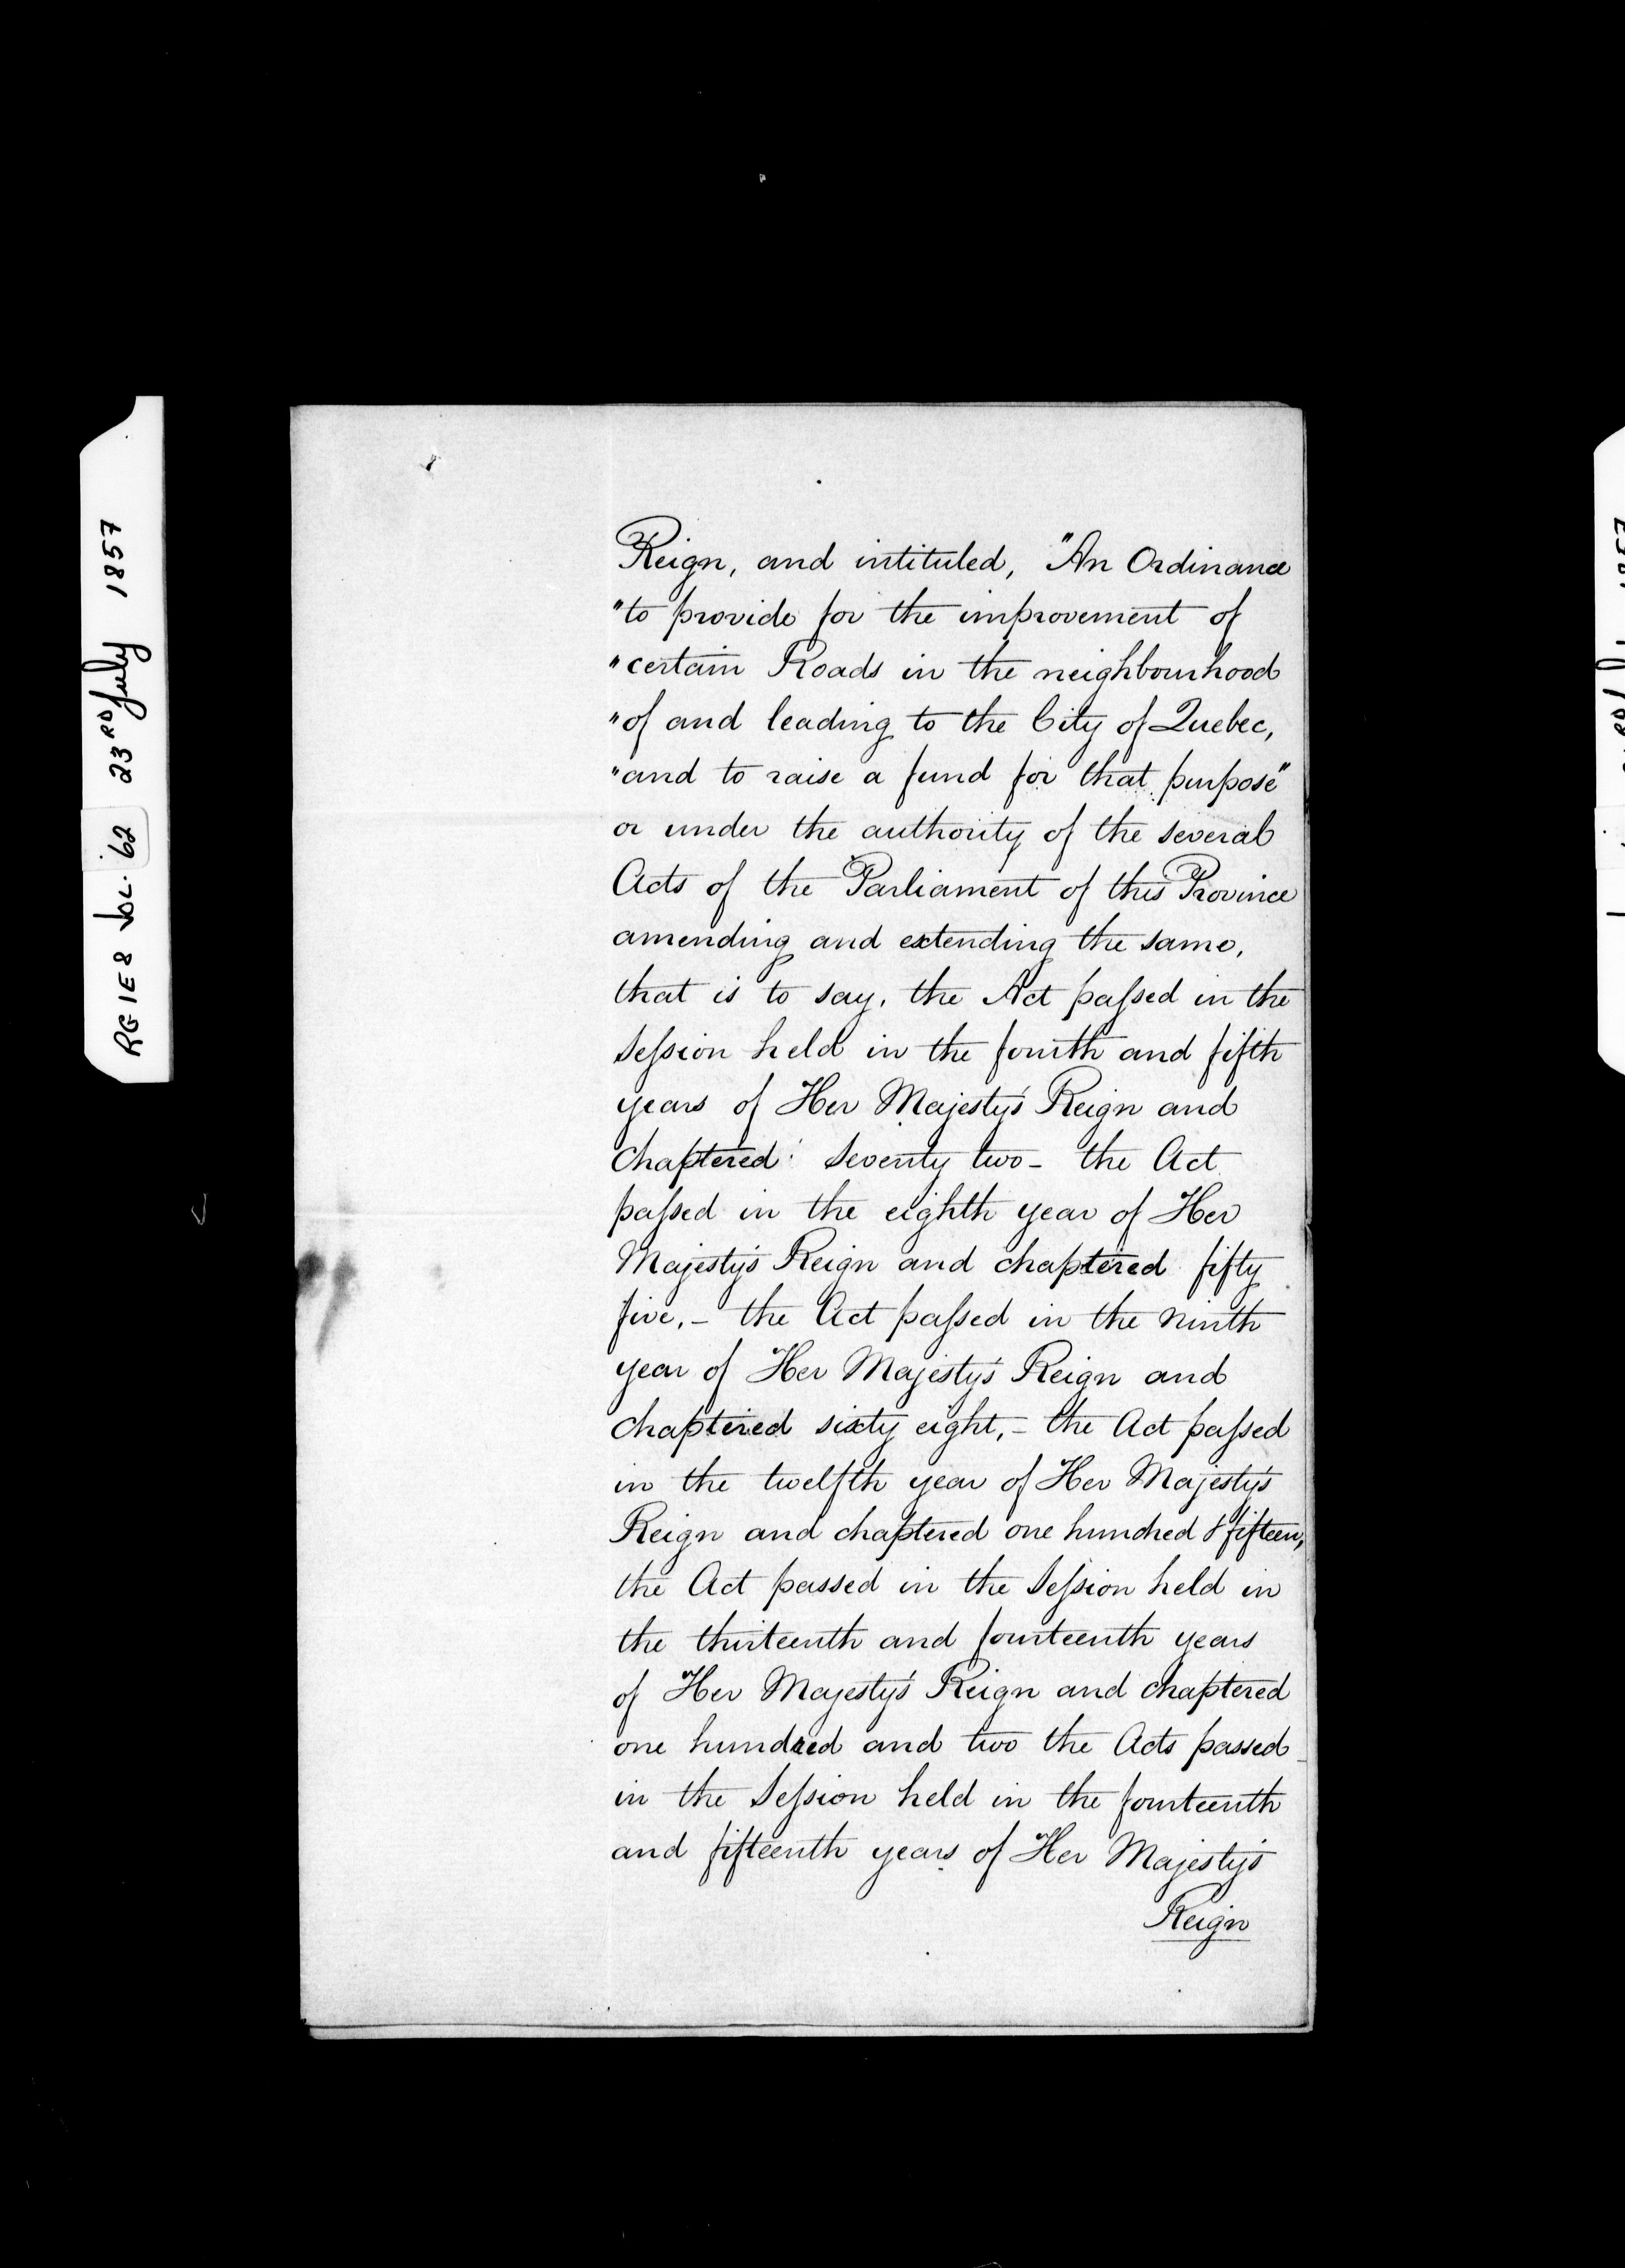 RG 1 E 8 VOL. 62 23RD July 1857
Reign, and intituled, "An Ordinance
"to provide for the improvement of
"certain Roads in the neighbourhood
"of and leading to the City of Quebec,
"and to raise a fund for that purpose"
or under the authority of the several
Acts of the Parliament of this Province
amending and extending the same,
that is to say, the Act passed in the
Session held in the fourth and fifth
years of Her Majesty's Reign and
chaptered seventy two - the Act
passed in the eighth year of Her
Majesty's Reign and chaptered fifty
five, - the Act passed in the ninth
year of Her Majesty's Reign and
chaptered sixty eight, - the Act passed
in the twelfth year of Her Majesty's
Reign and chaptered one hundred & fifteen,
the Act passed in the Session held in
the thirteenth and fourteenth years
of Her Majesty's Reign and chaptered
one hundred and two the Acts passed
in the Session held in the fourteenth
and fifteenth years of Her Majesty's
Reign